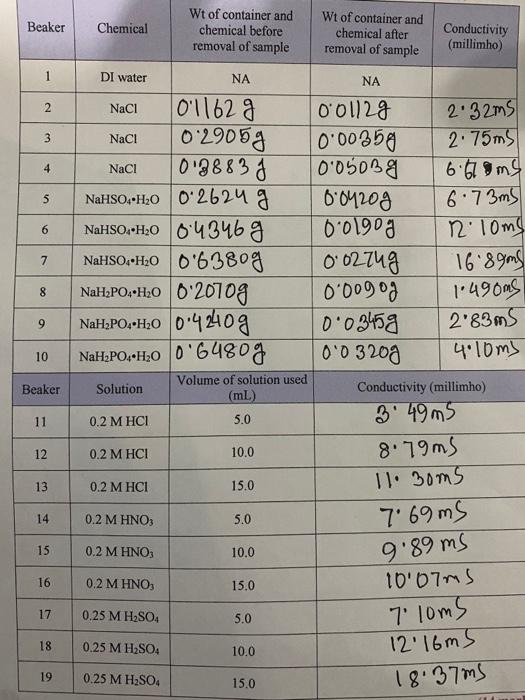 Beaker | Chemical | Wt of container and chemical before removal of sample | Wt of container and chemical after removal of sample | Conductivity (millimho)
1 | DI water | NA | NA |
2 | NaCl | 0.1162 g | 0.0112g | 2.32mS
3 | NaCl | 0.2905g | 0.0035g | 2.75mS
4 | NaCl | 0.3883 g | 0.0503g | mS
5 | NaHSO₄•H₂O | 0.2624 g | 0.0420g | 6.73mS
6 | NaHSO₄•H₂O | 0.4346g | 0.0190g | 12.10mS
7 | NaHSO₄•H₂O | 0.6380g | 0.0274g | 16.89mS
8 | NaH₂PO₄•H₂O | 0.2070g | 0.0090g | 1.490mS
9 | NaH₂PO₄•H₂O | 0.4240g | 0.0345g | 2.83mS
10 | NaH₂PO₄•H₂O | 0.6480g | 0.0320g | 4.10mS
Beaker | Solution | Volume of solution used (mL) | Conductivity (millimho)
11 | 0.2 M HCl | 5.0 | 3.49mS
12 | 0.2 M HCl | 10.0 | 8.79mS
13 | 0.2 M HCl | 15.0 | 11.30mS
14 | 0.2 M HNO₃ | 5.0 | 7.69mS
15 | 0.2 M HNO₃ | 10.0 | 9.89 mS
16 | 0.2 M HNO₃ | 15.0 | 10.07mS
17 | 0.25 M H₂SO₄ | 5.0 | 7.10mS
18 | 0.25 M H₂SO₄ | 10.0 | 12.16mS
19 | 0.25 M H₂SO₄ | 15.0 | 18.37mS